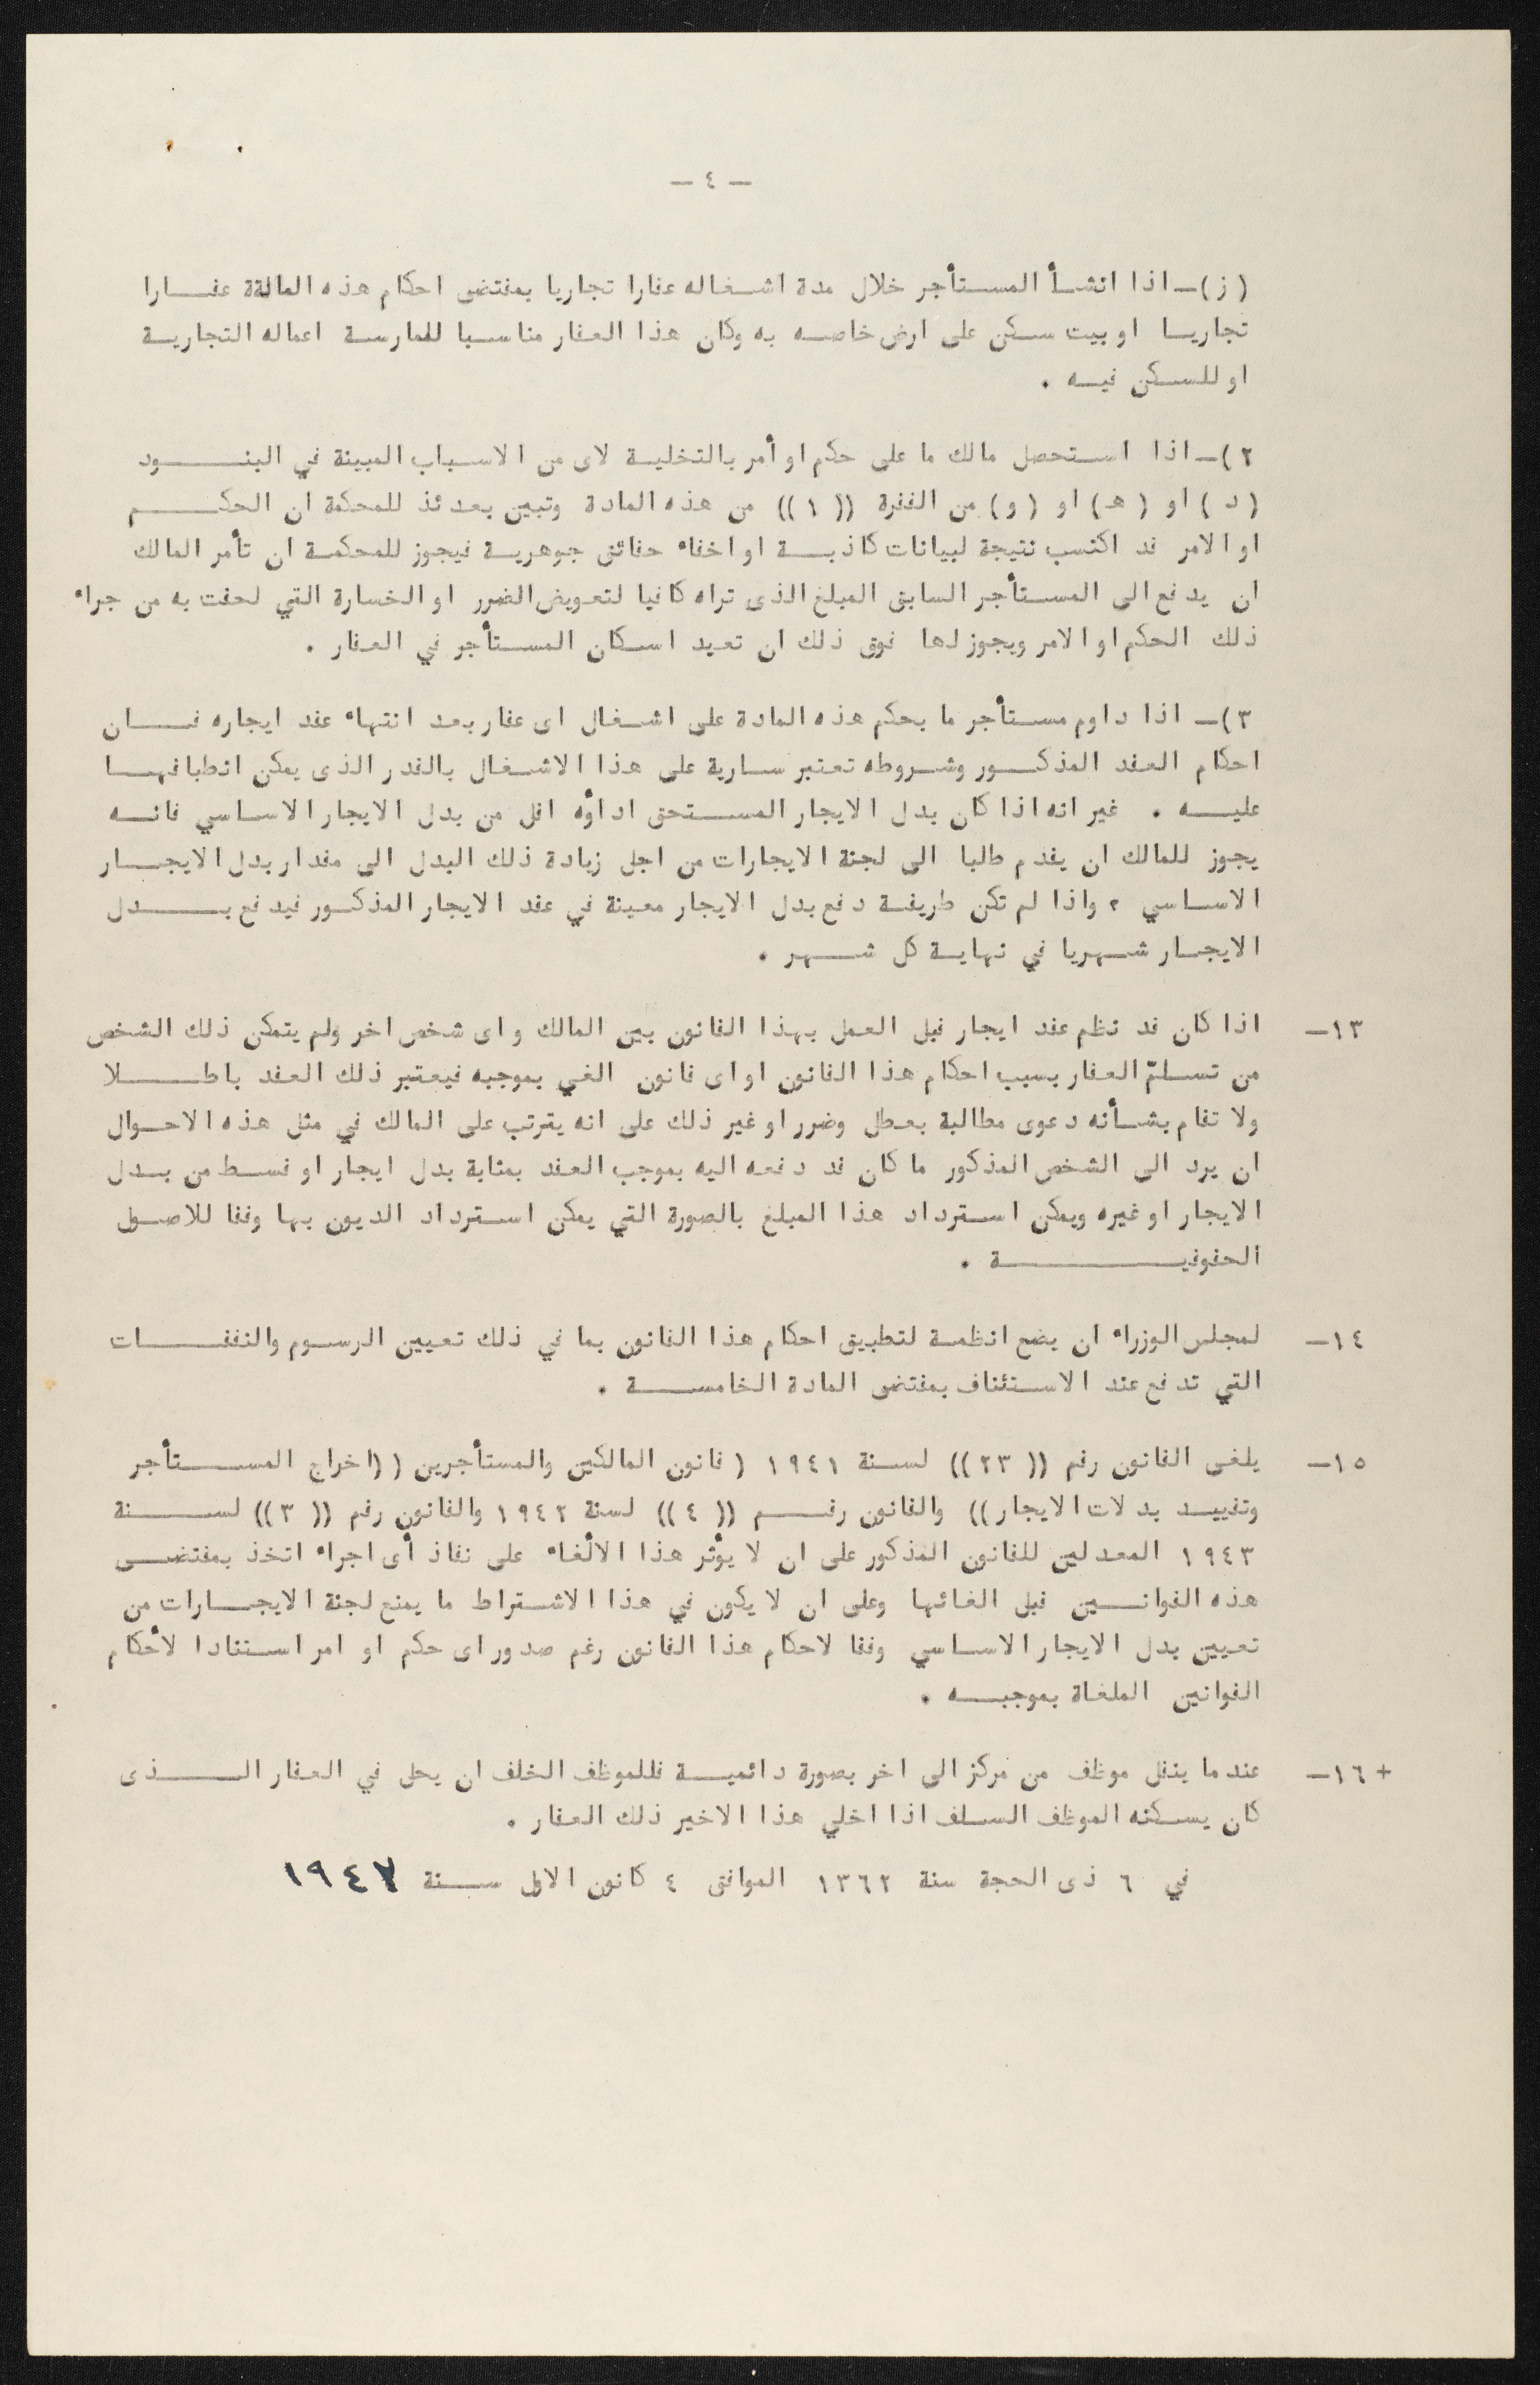 — ٤ —
( ز )— اذا انشأ المستأجر خلال مدة اشغاله عقارا تجاريا بمقتضى احكام هذه المادة عقارا
تجاريا او بيت سكن على ارض خاصه به وكان هذا العقار مناسبا لممارسة اعماله التجارية
او للسكن فيه .
٢)— اذا استحصل مالك ما على حكم او أمر بالتخلية لاى من الاسباب المبينة في البنود
( د ) او ( هـ ) او ( و ) من الفقرة (( ١ )) من هذه المادة وتبين بعدئذ للمحكمة ان الحكم
او الامر قد اكتسب نتيجة لبيانات كاذبة او اخفاء حقائق جوهرية فيجوز للمحكمة ان تأمر المالك
ان يدفع الى المستأجر السابق المبلغ الذى تراه كافيا لتعويض الضرر او الخسارة التي لحقت به من جراء
ذلك الحكم او الامر ويجوز لها فوق ذلك ان تعيد اسكان المستأجر في العقار .
٣)— اذا داوم مستأجر ما بحكم هذه المادة على اشغال اى عقار بعد انتهاء عقد ايجاره فان
احكام العقد المذكور وشروطه تعتبر سارية على هذا الاشغال بالقدر الذى يمكن انطباقها
عليه . غير انه اذا كان بدل الايجار المستحق اداؤه اقل من بدل الايجار الاساسي فانه
يجوز للمالك ان يقدم طلبا الى لجنة الايجارات من اجل زيادة ذلك البدل الى مقدار بدل الايجار
الاساسي ، واذا لم تكن طريقة دفع بدل الايجار معينة في عقد الايجار المذكور فيدفع بدل
الايجار شهريا في نهاية كل شهر .
١٣— اذا كان قد نظم عقد ايجار قبل العمل بهذا القانون بين المالك واى شخص اخر ولم يتمكن ذلك الشخص
من تسلمّ العقار بسبب احكام هذا القانون او اى قانون الغي بموجبه فيعتبر ذلك العقد باطلا
ولا تقام بشأنه دعوى مطالبة بعطل وضرر او غير ذلك على انه يترتب على المالك في مثل هذه الاحوال
ان يرد الى الشخص المذكور ما كان قد دفعه اليه بموجب العقد بمثابة بدل ايجار او قسط من بدل
الايجار او غيره ويمكن استرداد هذا المبلغ بالصورة التي يمكن استرداد الديون بها وفقا للاصول
الحقوقية .
١٤— لمجلس الوزراء ان يضع انظمة لتطبيق احكام هذا القانون بما في ذلك تعيين الرسوم والنفقات
التي تدفع عند الاستئناف بمقتضى المادة الخامسة .
١٥— يلغى القانون رقم (( ٢٣ )) لسنة ١٩٤١ ( قانون المالكين والمستأجرين ((اخراج المستأجر
وتقييد بدلات الايجار)) والقانون رقم (( ٤ )) لسنة ١٩٤٢ والقانون رقم (( ٣ )) لسنة
١٩٤٣ المعدلين للقانون المذكور على ان لا يؤثر هذا الالغاء على نفاذ أى اجراء اتخذ بمقتضى
هذه القوانين قبل الغائها وعلى ان لا يكون في هذا الاشتراط ما يمنع لجنة الايجارات من
تعيين بدل الايجار الاساسي وفقا لاحكام هذا القانون رغم صدور اى حكم او امر استنادا لأحكام
القوانين الملغاة بموجبه .
+ ١٦— عندما ينقل موظف من مركز الى اخر بصورة دائمية فللموظف الخلف ان يحل في العقار الذى
كان يسكنه الموظف السلف اذا اخلي هذا الاخير ذلك العقار .
في ٦ ذى الحجة سنة ١٣٦٢ الموافق ٤ كانون الاول سنة ١٩٤٧